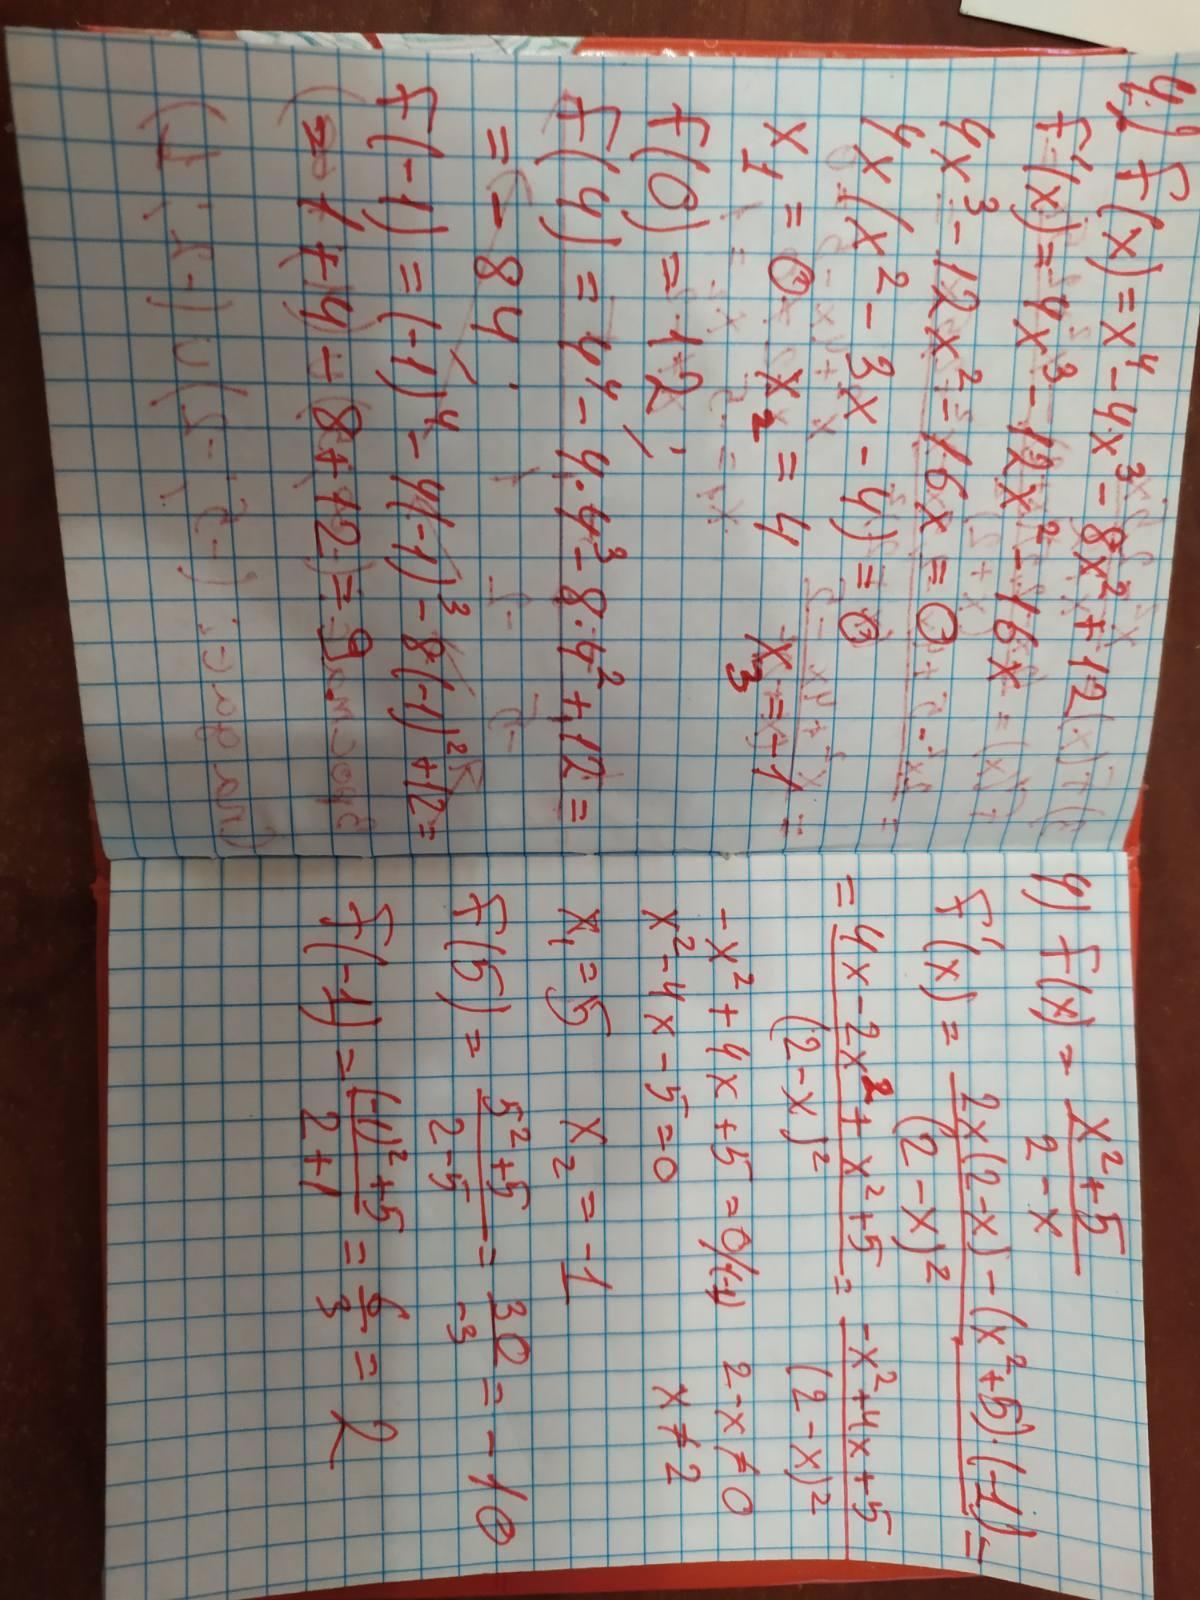 4) f(x) = x⁴ - 4x³ - 8x² + 12
f'(x) = 4x³ - 12x² - 16x
4x³ - 12x² - 16x = 0
4x(x² - 3x - 4) = 0
x₁ = 0 x₂ = 4 x₃ = -1
f(0) = 12;
f(4) = 4⁴ - 4·4³ - 8·4² + 12 =
= -84;
f(-1) = (-1)⁴ - 4(-1)³ - 8(-1)² + 12 =
= 1 + 4 - 8 + 12 = 9.
4) f(x) = (x² + 5)/(2 - x)
f'(x) = (2x(2 - x) - (x² + 5)·(-1))/(2 - x)² =
= (4x - 2x² + x² + 5)/(2 - x)² = (-x² + 4x + 5)/(2 - x)²
-x² + 4x + 5 = 0/(-1) 2 - x ≠ 0
x² - 4x - 5 = 0 x ≠ 2
x₁ = 5 x₂ = -1
f(5) = (5² + 5)/(2 - 5) = 30/-3 = -10
f(-1) = ((-1)² + 5)/(2 + 1) = 6/3 = 2